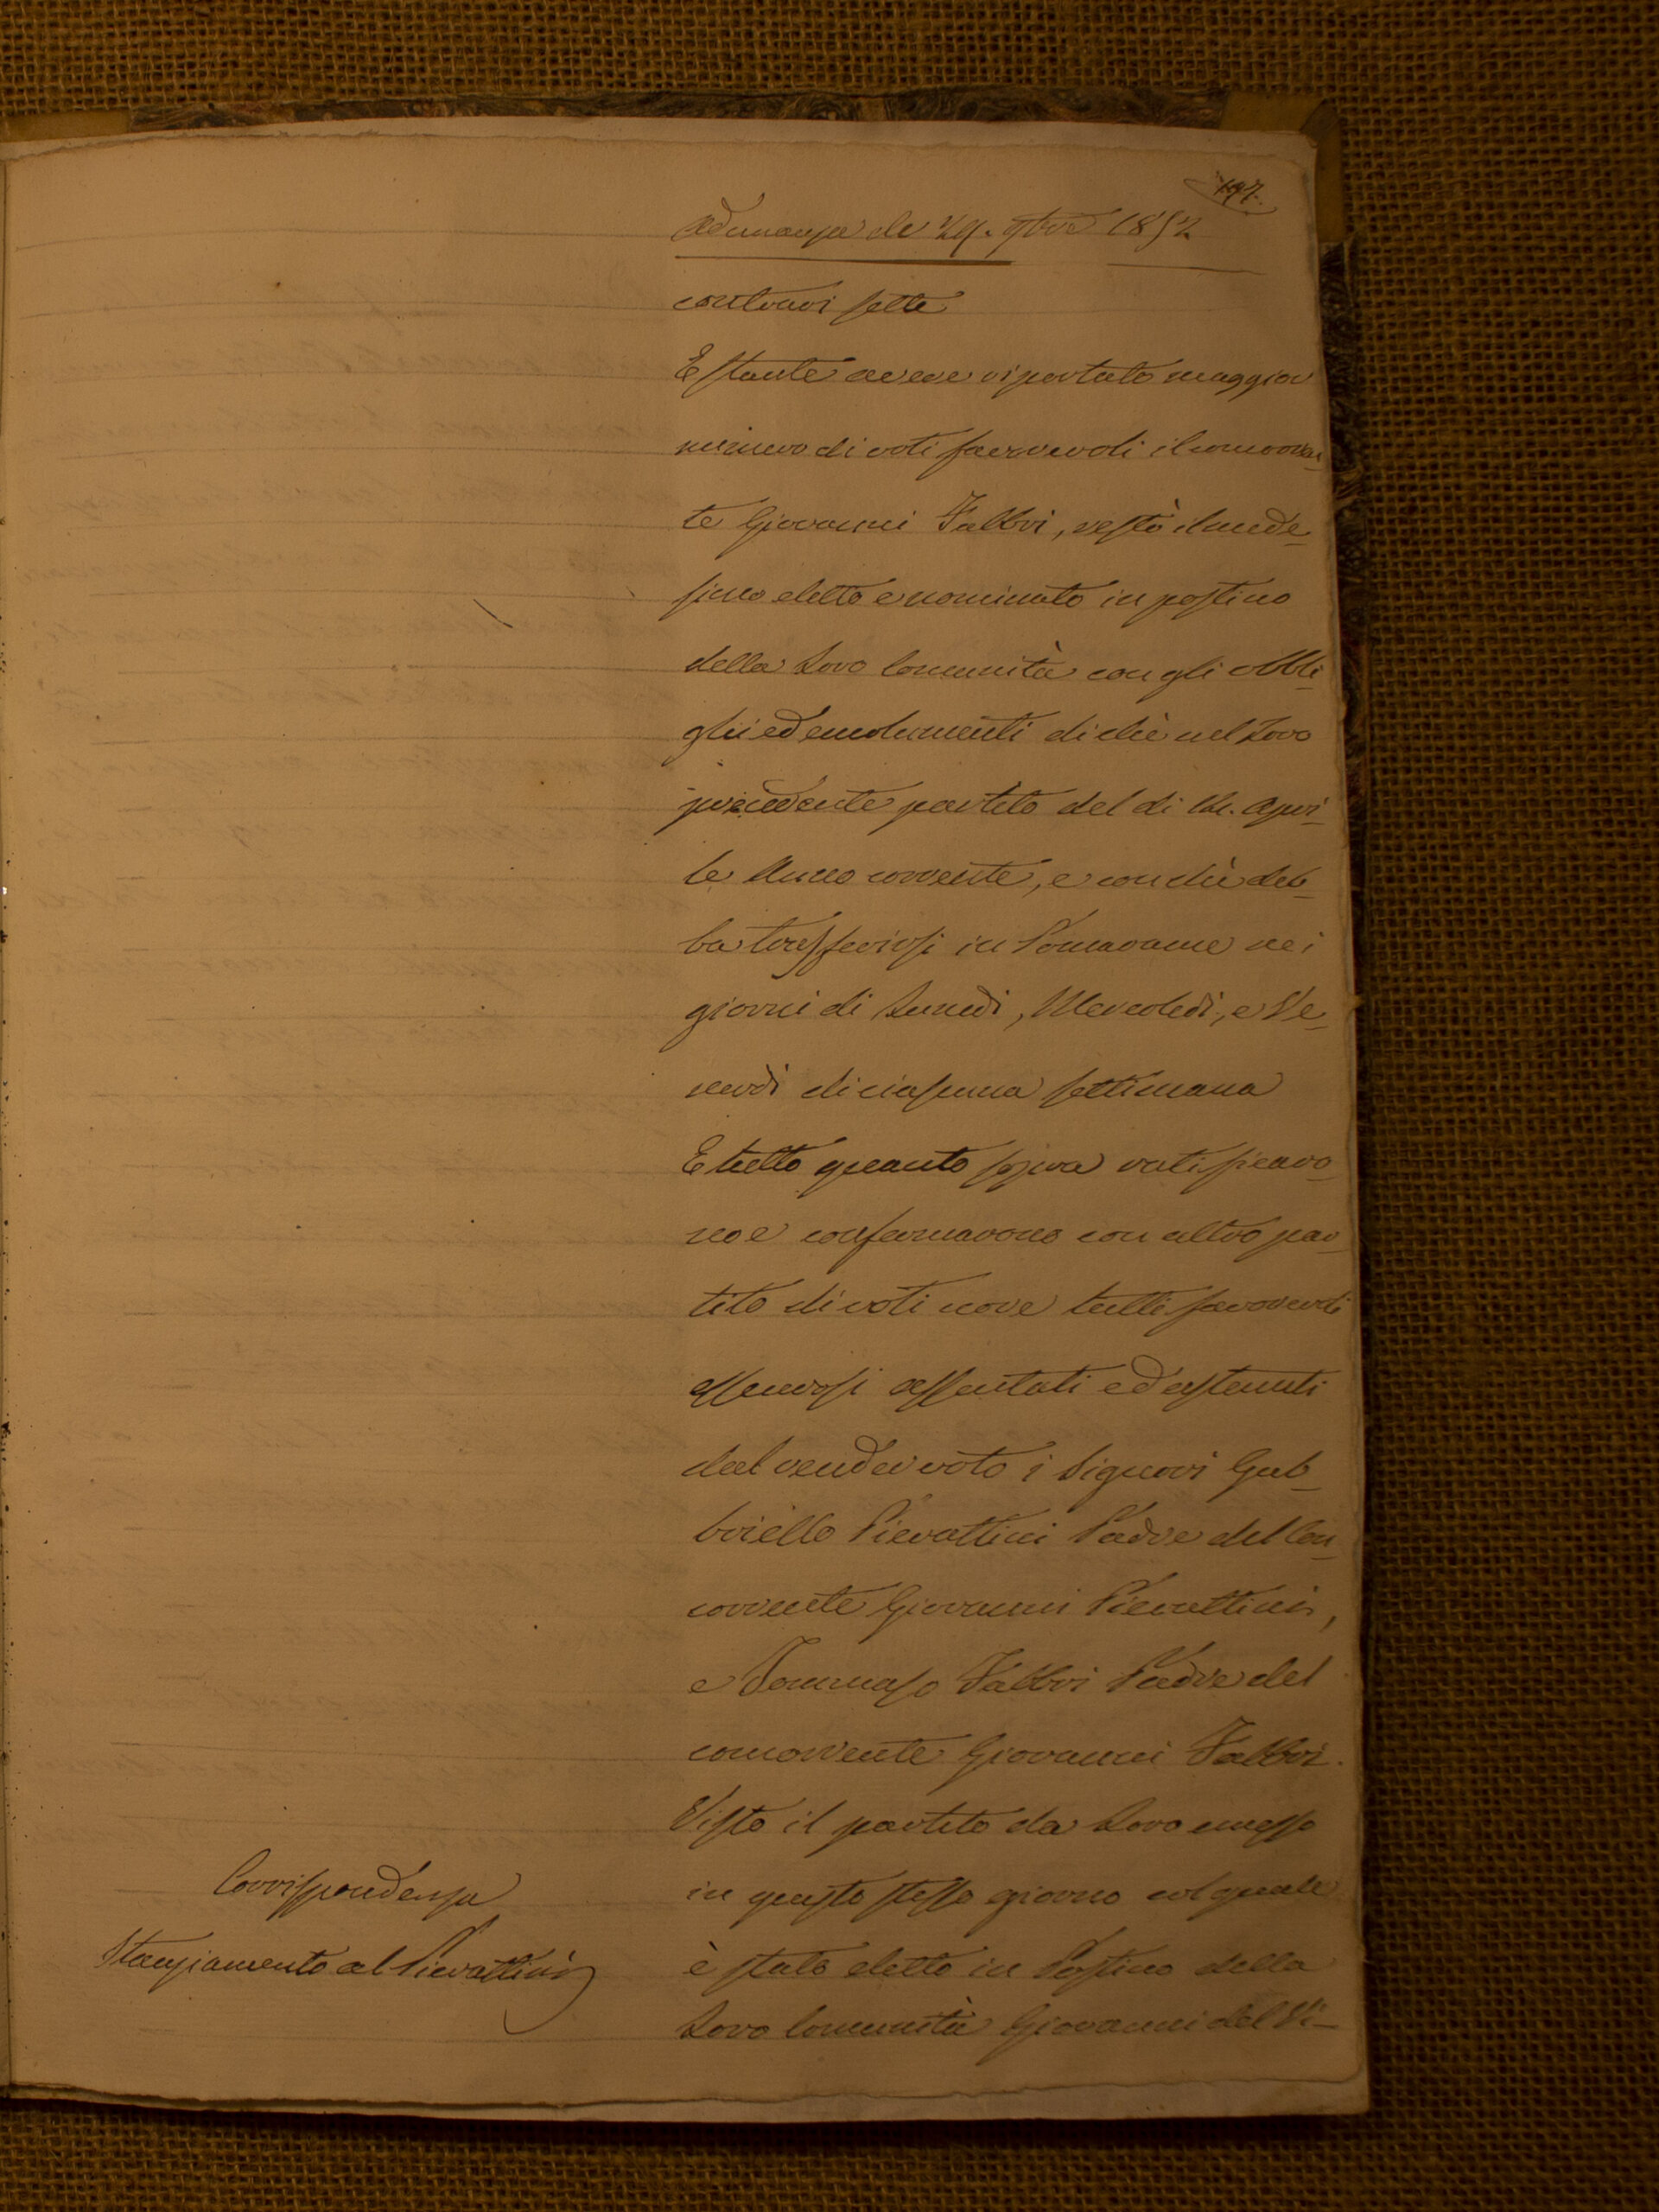 197.
Adunanza de 29. 9bre 1852
contrari sette
E stante avere riportato maggior
numero di voti favorevoli il concorren-
te Giovanni Fabbri, restò il mede-
simo eletto e nominato in postino
della Loro Comunità con gli obbli-
ghi ed emolumenti di che nel Loro
precedente partito del dì Apri-
le Anno corrente, e con che deb-
ba trasferirsi in Pomarance nei
giorni di Lunedì, Mercoledì, e Ve-
nerdì di ciascuna settimana
E tutto quanto sopra ratificaro-
no e confermarono con altro par-
tito di voti nove tutti favorevoli
essendosi assentati ed astenuti
dal render voto i Signori Gab-
briello Pierattini Padre del Con-
corrente Giovanni Pierattini,
e Tommaso Fabbri Padre del
concorrente Giovanni Fabbri.
Visto il partito da Loro emesso
in questo stesso giorno col quale
è stato eletto in Postino della
Loro Comunità Giovanni del Si-
Corrispondenza
Stanziamento al Pierattini